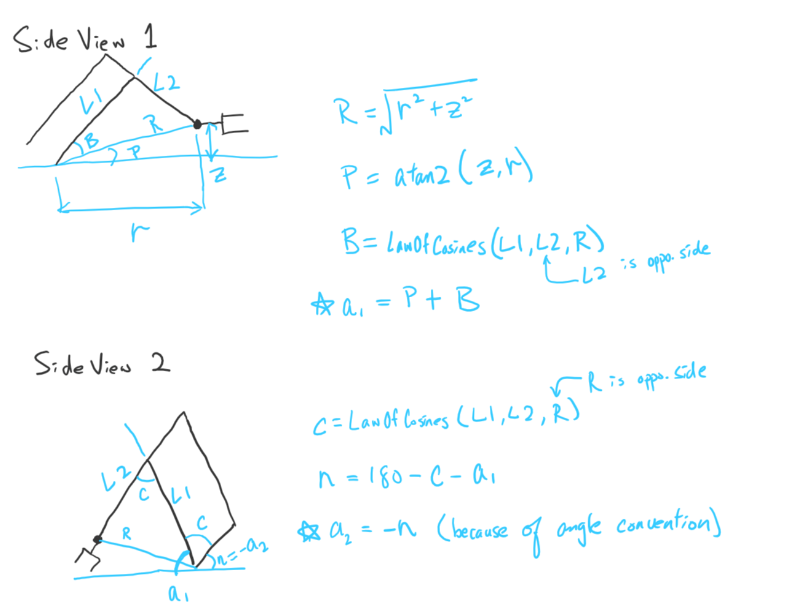 Side View 1
L1
L2
R
B
P
z
r
R = √r² + z²
P = atan2(z, r)
B = LawOfCosines(L1, L2, R)
L2 is oppo. side
☆ a₁ = P + B
Side View 2
L2
C
L1
R
C
n = -a₂
a₁
R is oppo. side
C = LawOfCosines(L1, L2, R)
n = 180 - C - a₁
☆ a₂ = -n (because of angle convention)